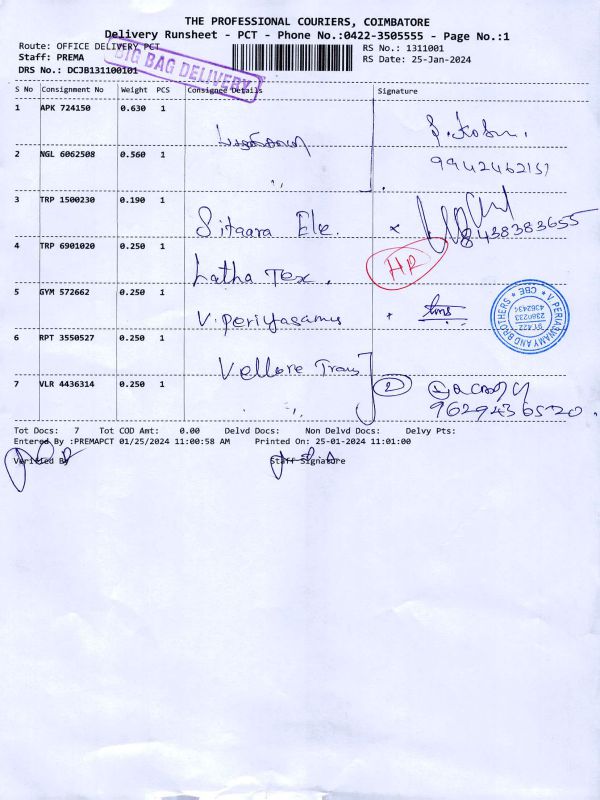 THE PROFESSIONAL COURIERS, COIMBATORE
Delivery Runsheet - PCT - Phone No.:0422-3505555 - Page No.:1
Route: OFFICE DELIVERY PCT
RS No.: 1311001
Staff: PREMA
RS Date: 25-Jan-2024
DRS No.: DCJB131100101
BIG BAG DELIVERY
S No Consignment No Weight PCS Consignee Details Signature
1 APK 724150 0.630 1
2 NGL 6062508 0.560 1 9942462151
3 TRP 1500230 0.190 1 Sitaara Ele. x 8438383655
4 TRP 6901020 0.250 1 Latha Tex. HR
5 GYM 572662 0.250 1 V. Periyasamy
V. PERIASWAMY AND BROTHERS * CBE *
6 RPT 3550527 0.250 1 Vellore Trans 2
7 VLR 4436314 0.250 1 " 9629436520.
Tot Docs: 7 Tot COD Amt: 0.00 Delvd Docs: Non Delvd Docs: Delvy Pts:
Entered By :PREMAPCT 01/25/2024 11:00:58 AM Printed On: 25-01-2024 11:01:00
Verified By Staff Signature